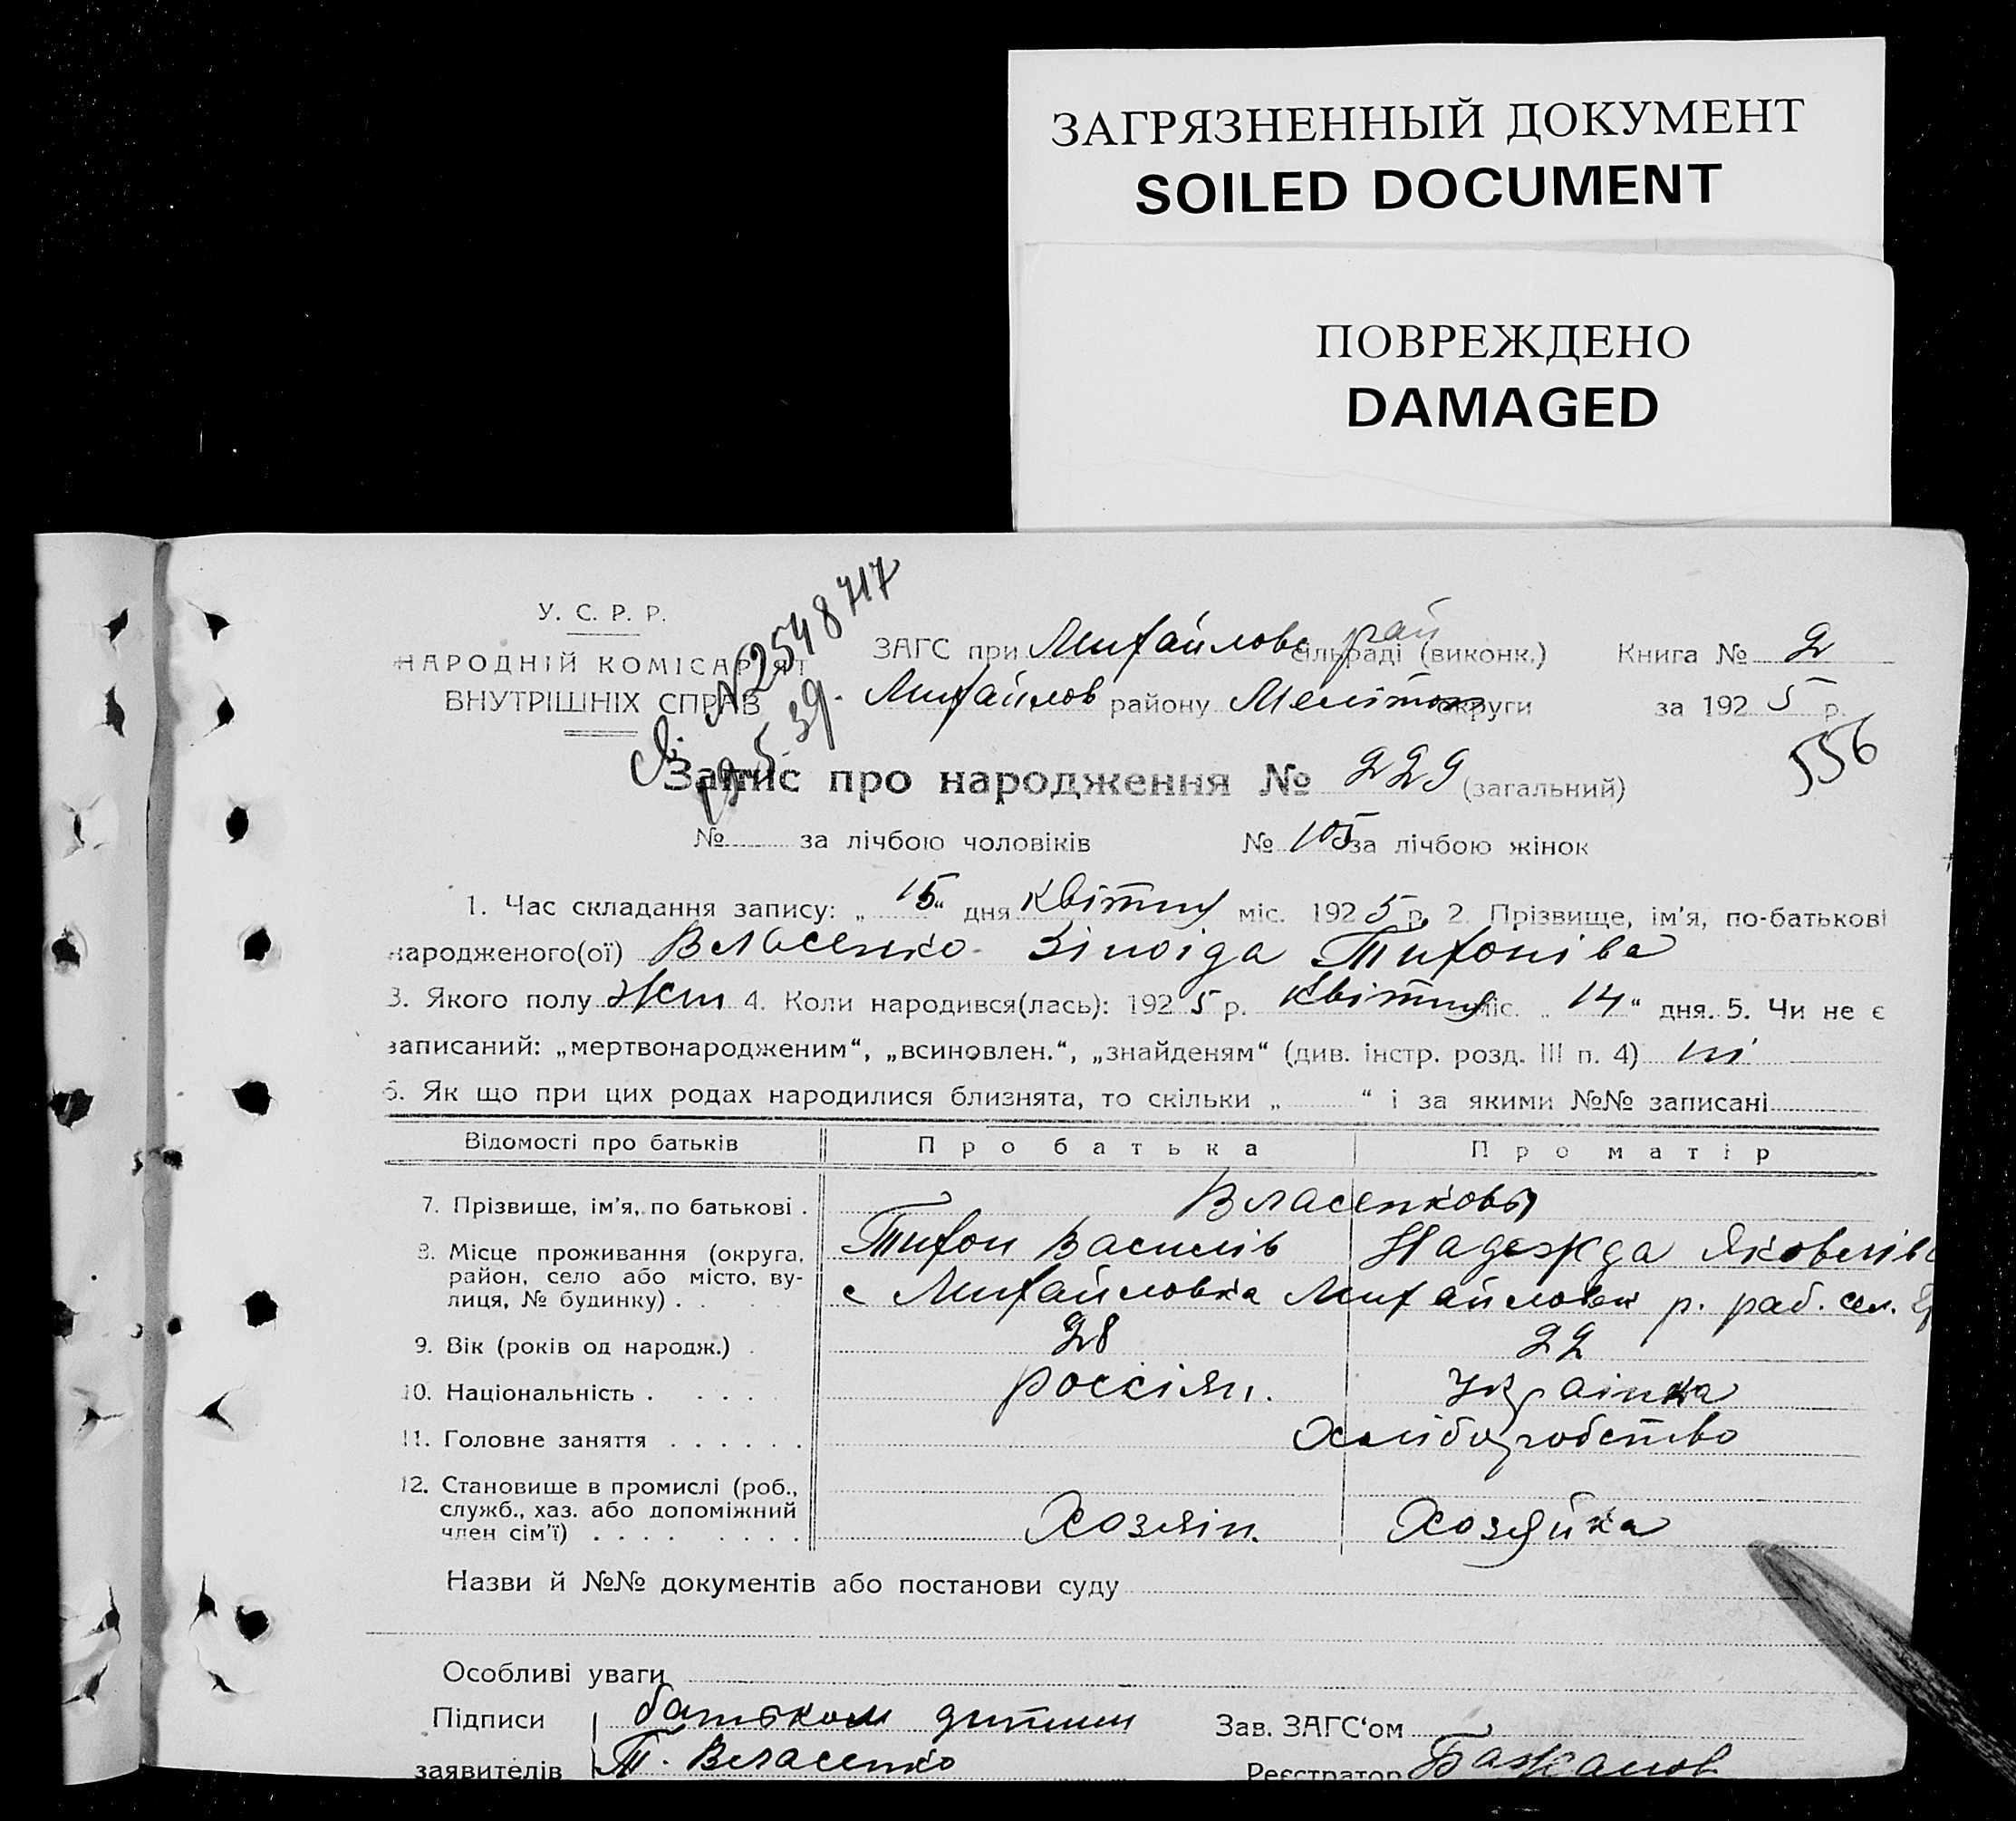 ЗАГРЯЗНЕННЫЙ ДОКУМЕНТ
SOILED DOCUMENT
ПОВРЕЖДЕНО
DAMAGED
У. С. Р. Р.
НАРОДНІЙ КОМІСАРІЯТ
ВНУТРІШНІХ СПРАВ
№2548717
39.
ЗАГС при Михайлов сільраді (виконк.) рай Книга № 2
Михайлов району Меліт округи за 1925 р.
556
Запис про народження № 229 (загальний)
№ за лічбою чоловіків № 105 за лічбою жінок
1. Час складання запису: „15“ дня квітня міс. 1925 р. 2. Прізвище, ім'я, по-батькові
народженого(ої) Власенко Зіноіда Тихоніва
3. Якого полу жін 4. Коли народився(лась): 1925 р. квітня міс. „14“ дня. 5. Чи не є
записаний: „мертвонародженим“, „всиновлен.“, „знайденям“ (див. інстр. розд. III п. 4) ні
6. Як що при цих родах народилися близнята, то скільки „ “ і за якими №№ записані
Відомості про батьків Про батька Про матір
7. Прізвище, ім'я, по батькові . Власенковы
Тихон Василів Надежда Яковлів
8. Місце проживання (округа, район, село або місто, вулиця, № будинку) . . с Михайловка Михайловск р. раб. сел.
9. Вік (років од народж.) . 28 22
10. Національність . . . . . россіян. Українка
11. Головне заняття . . . . . . Хлібородство
12. Становище в промислі (роб., служб., хаз. або допоміжний член сім'ї) . . . . . . . . Хозяін. Хозяйка
Назви й №№ документів або постанови суду
Особливі уваги
Підписи батьком дитини Зав. ЗАГС'ом
заявителів Т. Власенко Реєстратор Бажанов